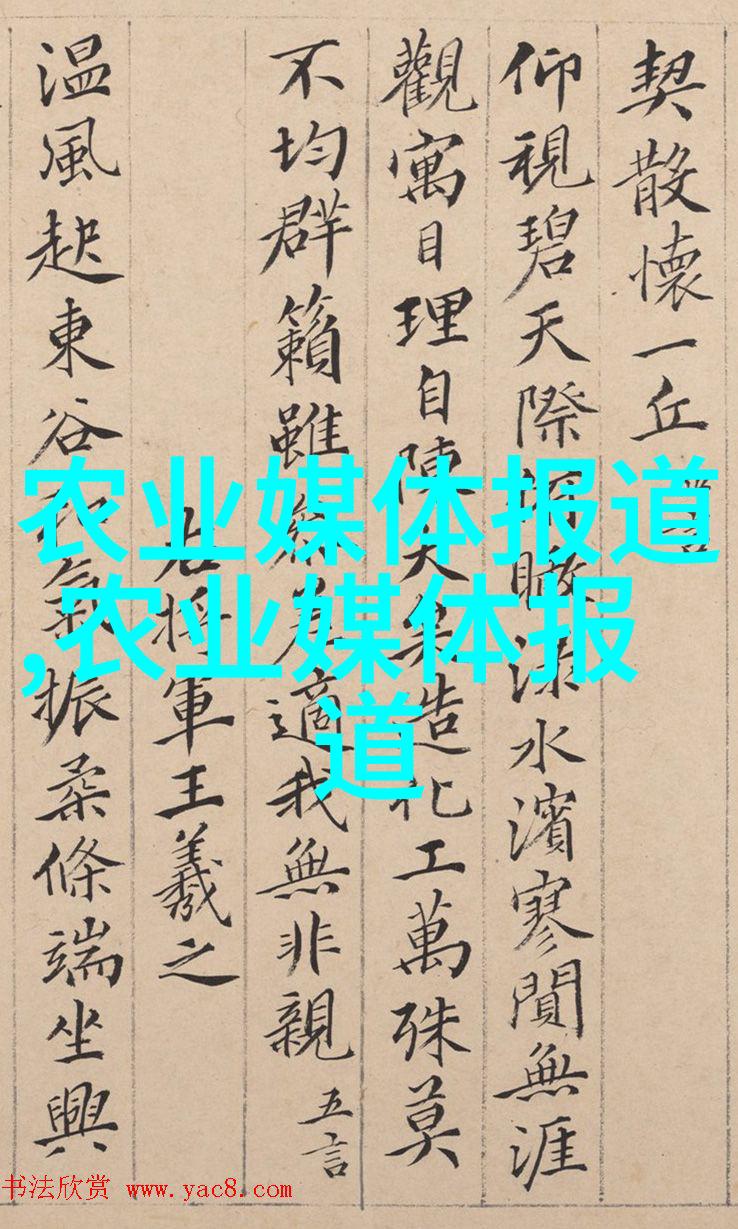 契散懷一丘
仰視碧天際俯瞰淥水濱寥閴無涯
觀寓目理自陳大矣造化工萬殊莫
不均群籟雖參差適我無非親 五言
右將軍王羲之
温風起東谷和氣振柔條端坐興
农业媒体报道
,农业媒体报
道
书法欣赏 www.yac8.com